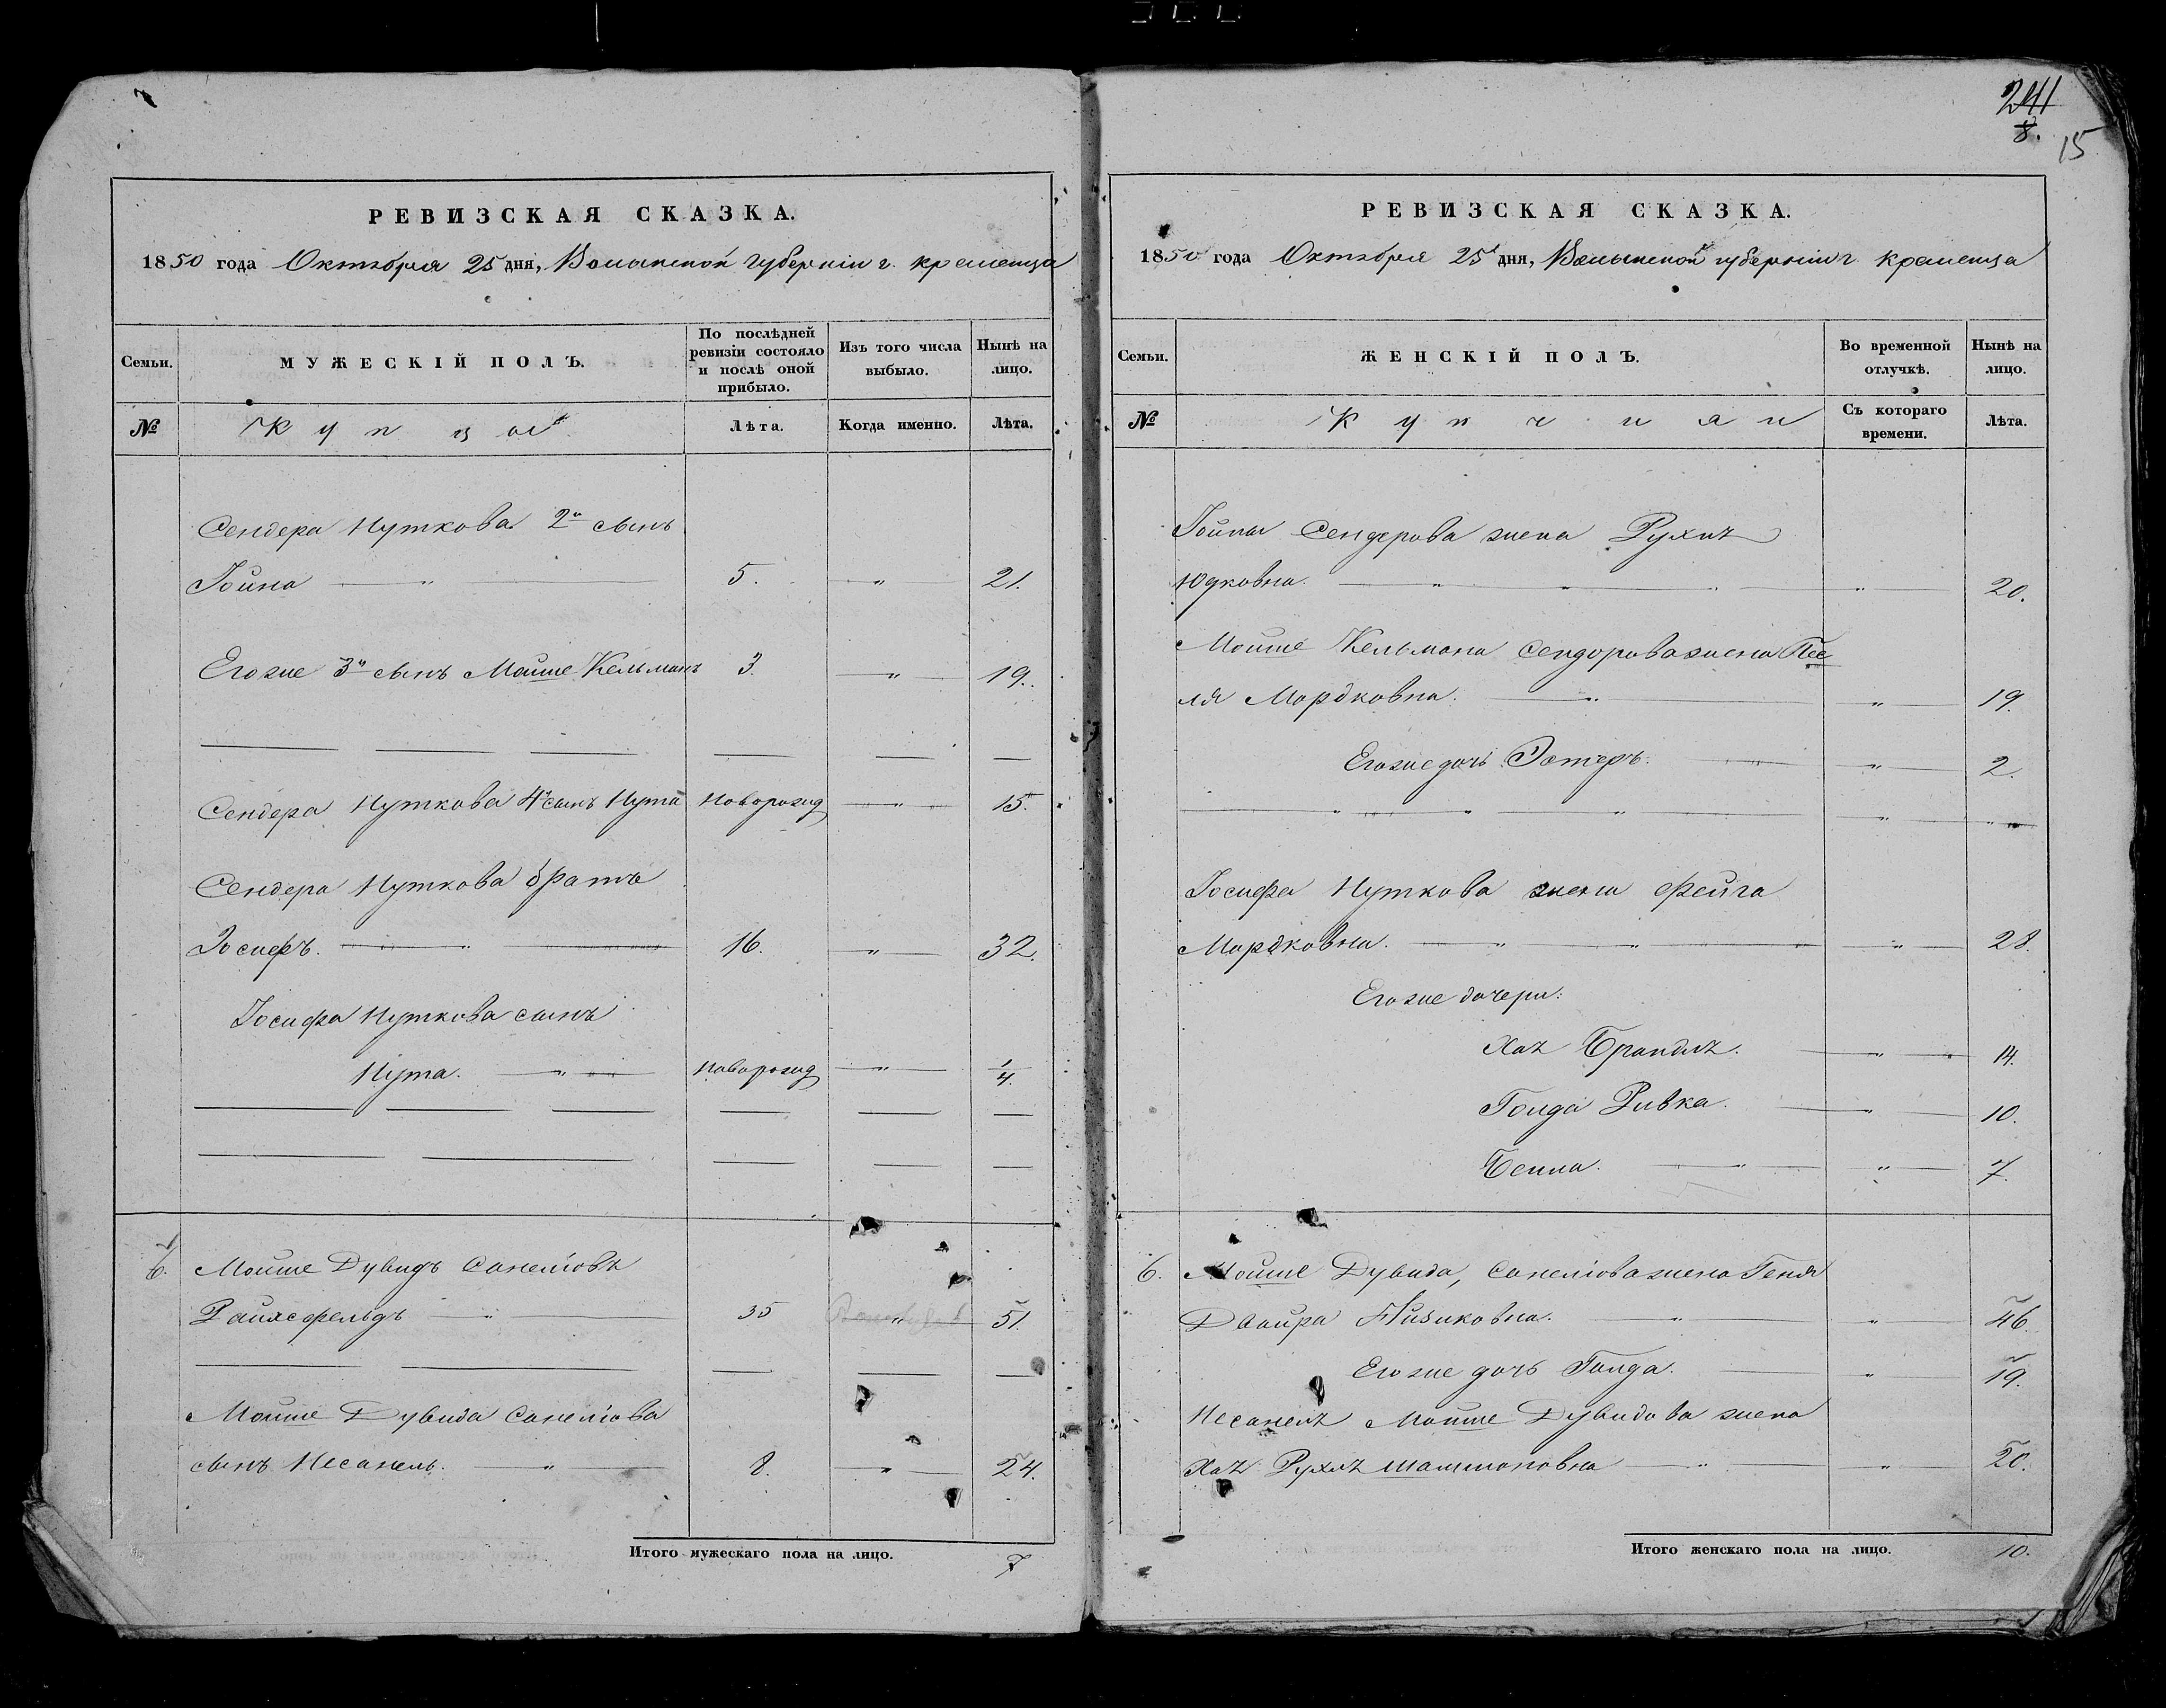 РЕВИЗСКАЯ СКАЗКА.
1850 года Октября 25 дня, Волынской губерніи г. кременца
Семьи.
МУЖЕСКІЙ ПОЛЪ.
По послѣдней ревизіи состояло и послѣ оной прибыло.
Изъ того числа выбыло.
Нынѣ на лицо.
№
Купцы
Лѣта.
Когда именно.
Лѣта.
Сендера Нуткова 2й сынъ
Іойна — " — 5. — " — 21.
Егоже 3й сынъ Мойше Кельманъ 3. — " — 19.
Сендера Нуткова 4й сынъ Нута Новорожд — " — 15.
Сендера Нуткова братъ
Іосифъ. — " — 16. — " — 32.
Іосифа Нуткова сынъ
Нута. — " — Новорожд — " — 1/4.
6. Мойше Дувидъ Санеліовъ
Райхсфельдъ — " — 35 — " — 51.
Мойше Дувида Санеліова
сынъ Несанель. — " — 8. — " — 24.
Итого мужескаго пола на лицо. 7
241
8.
15
РЕВИЗСКАЯ СКАЗКА.
1850 года Октября 25 дня, Волынской губерніи г. кременца
Семьи.
ЖЕНСКІЙ ПОЛЪ.
Во временной отлучкѣ.
Нынѣ на лицо.
№
Съ котораго времени.
Лѣта.
Іойны Сендерова жена Рухлъ
Юдковна. — " — " — 20.
Мойше Кельмана Сендерова жена Пес
ля Мордковна. — " — " — 19.
Егоже дочь Эстеръ. — " — 2.
Іосифа Нуткова жена Фейга
Мордковна. — " — " — 28.
Егоже дочери:
Хая Брандлъ. — " — 14.
Голда Ривка. — " — 10.
Бейла. — " — " — 7.
6. Мойше Дувида, Санеліова жена Геня
Двойра — " — " — 46.
Егоже дочь Голда. — " — 19.
Несанеля Мойше Дувидова жена
Хая Рухлъ Шлиомовна — " — " — 20.
Итого женскаго пола на лицо. 10.